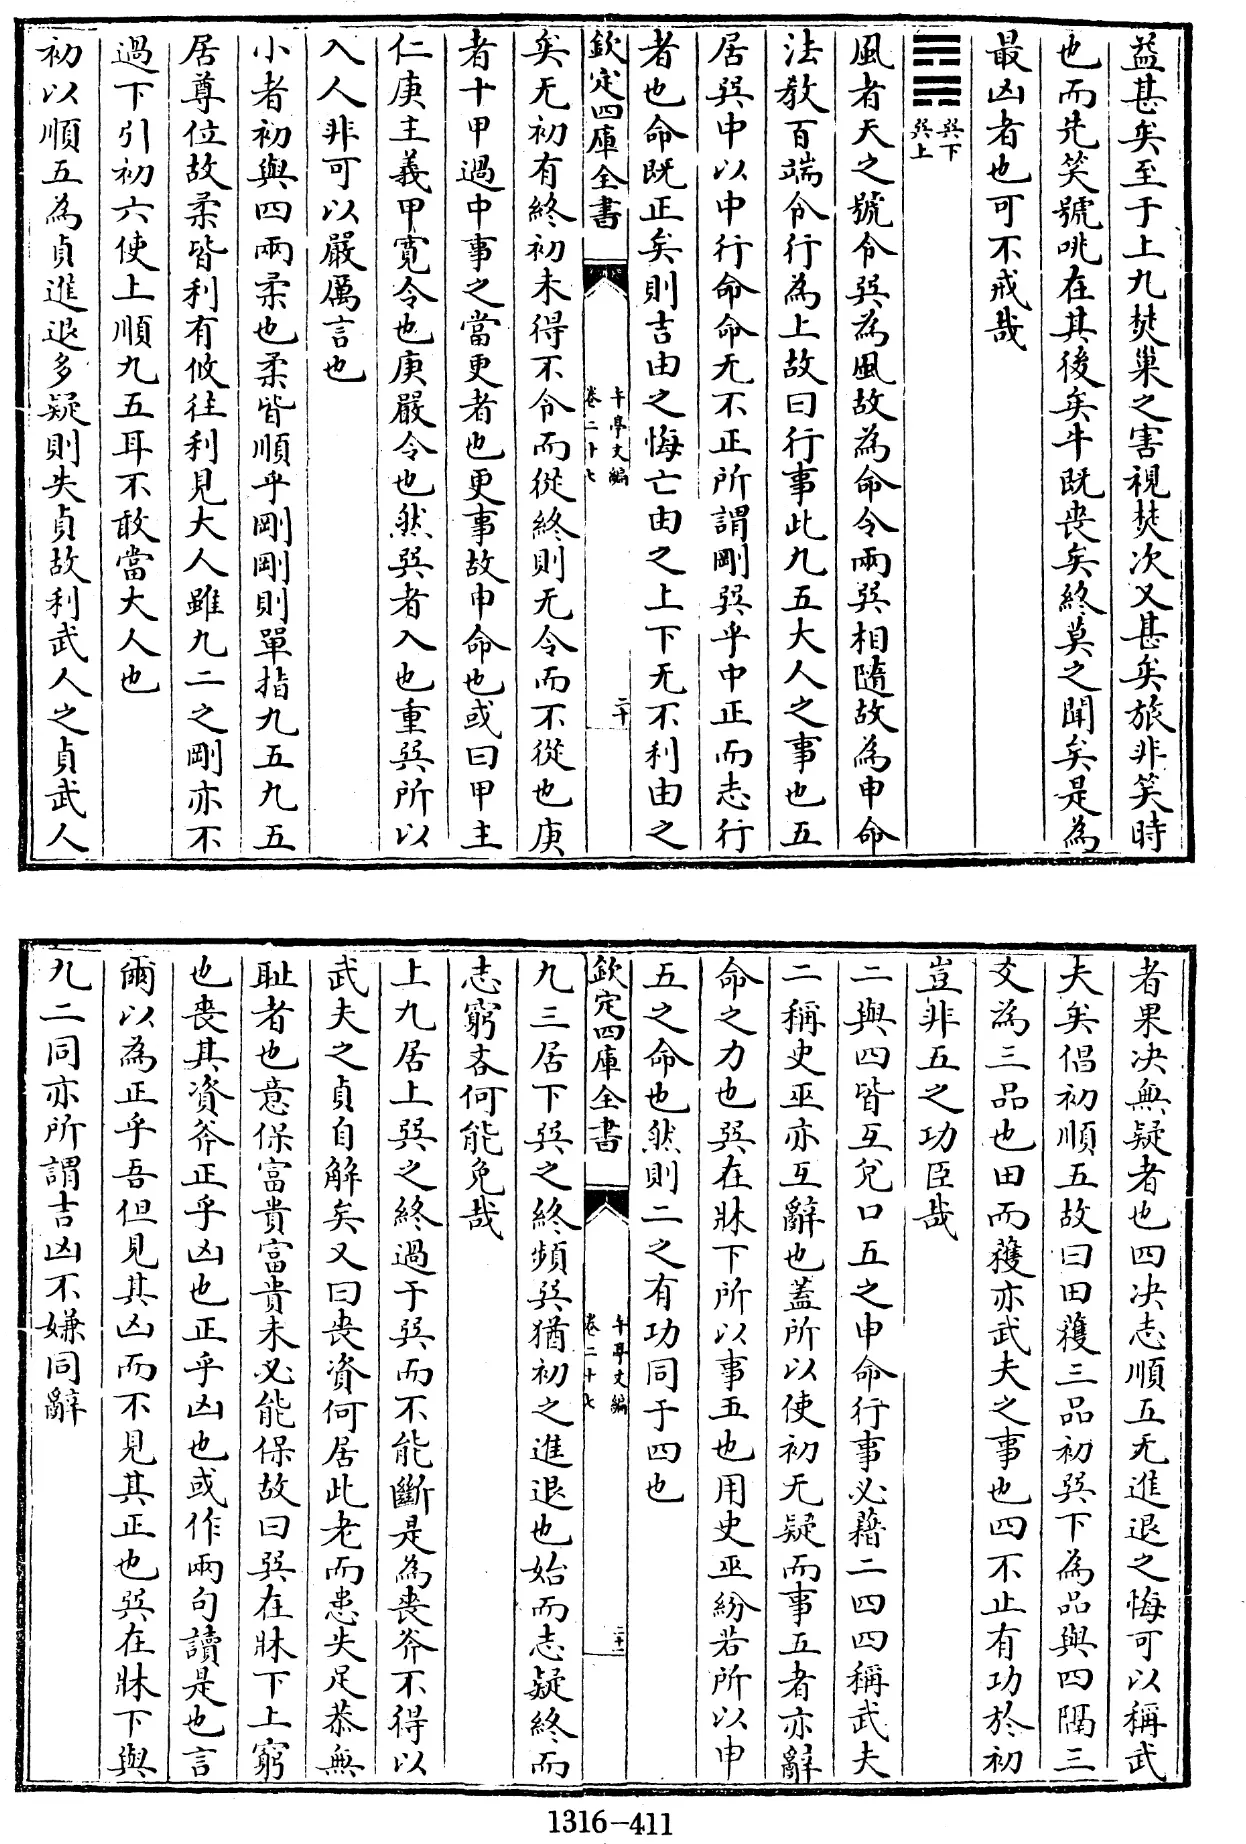 益甚矣至于上九焚巢之害視焚次又甚矣旅非笑時
也而先笑號咷在其後矣牛既喪矣終莫之聞矣是為
最凶者也可不戒哉
䷸巽下巽上
風者天之號令巽為風故為命令兩巽相隨故為申命
法教百端令行為上故曰行事此九五大人之事也五
居巽中以中行命命无不正所謂剛巽乎中正而志行
者也命既正矣則吉由之悔亡由之上下无不利由之
欽定四庫全書
午亭文編
卷二十七
二十
矣无初有終初未得不令而從終則无令而不從也庚
者十甲過中事之當更者也更事故申命也或曰甲主
仁庚主義甲寛令也庚嚴令也然巽者入也重巽所以
入人非可以嚴厲言也
小者初與四兩柔也柔皆順乎剛剛則單指九五九五
居尊位故柔皆利有攸往利見大人雖九二之剛亦不
過下引初六使上順九五耳不敢當大人也
初以順五為貞進退多疑則失貞故利武人之貞武人
者果决無疑者也四决志順五无進退之悔可以稱武
夫矣倡初順五故曰田獲三品初巽下為品與四隔三
爻為三品也田而獲亦武夫之事也四不止有功於初
豈非五之功臣哉
二與四皆互兌口五之申命行事必藉二四四稱武夫
二稱史巫亦互辭也蓋所以使初无疑而事五者亦辭
命之力也巽在牀下所以事五也用史巫紛若所以申
五之命也然則二之有功同于四也
欽定四庫全書
午亭文編
卷二十七
二十一
九三居下巽之終頻巽猶初之進退也始而志疑終而
志窮吝何能免哉
上九居上巽之終過于巽而不能斷是為喪斧不得以
武夫之貞自解矣又曰喪資何居此老而患失足恭無
耻者也意保富貴富貴未必能保故曰巽在牀下上窮
也喪其資斧正乎凶也正乎凶也或作兩句讀是也言
爾以為正乎吾但見其凶而不見其正也巽在牀下與
九二同亦所謂吉凶不嫌同辭
1316-411